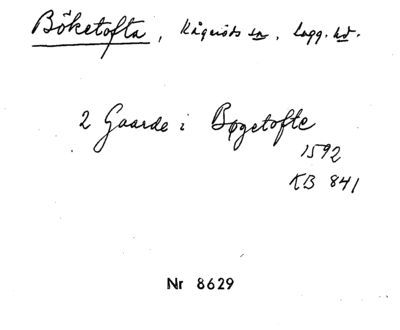 Böketofta, Kågeröds sn, Lugg. hd.
2 Gaarde i Bøgetofte
1592
KB 841
Nr 8629